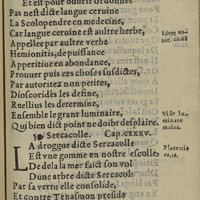 Et pour ouurir ordonnee
Pas n'est dicte langue ceruine
La Scolopendre en medecine,
Car langue ceruine est aultre herbe,
Appellee par aultre verbe
Hemionitis, de puissance
Apperitiue en abondance,
Prouuer puis ces choses susdictes,
Par autoritez non petites,
Dioscorides les define,
Ruellius les determine,
Ensemble le grant luminaire,
Qui bien dict point ne doibt desplaire.
Sercacolle. Cap.cxxxv.
LA droggue dicte Sercacolle
Est vne gomme en nostre escolle
De dela la mer faict son vol
D'une arbre dicte Sercacols
Par sa vertu elle consolide,
Et contre Tenasmon preside
Idem au-
Vide lu-
minare
maius.
Platearis